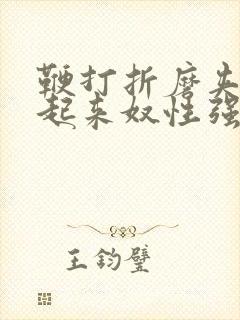 鞭打折磨夹
起来奴性强
王钧璧